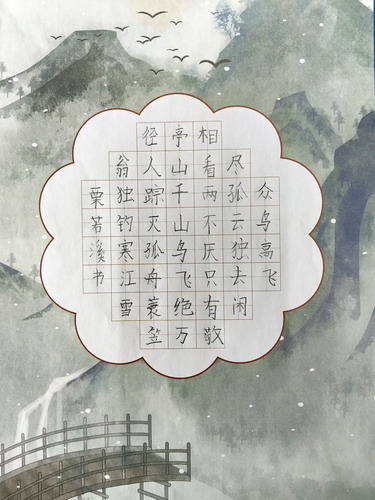 众鸟高飞
尽孤云独去闲
相看两不厌只有敬
亭山千山鸟飞绝万
径人踪灭孤舟蓑笠
翁独钓寒江雪
栗若溪书